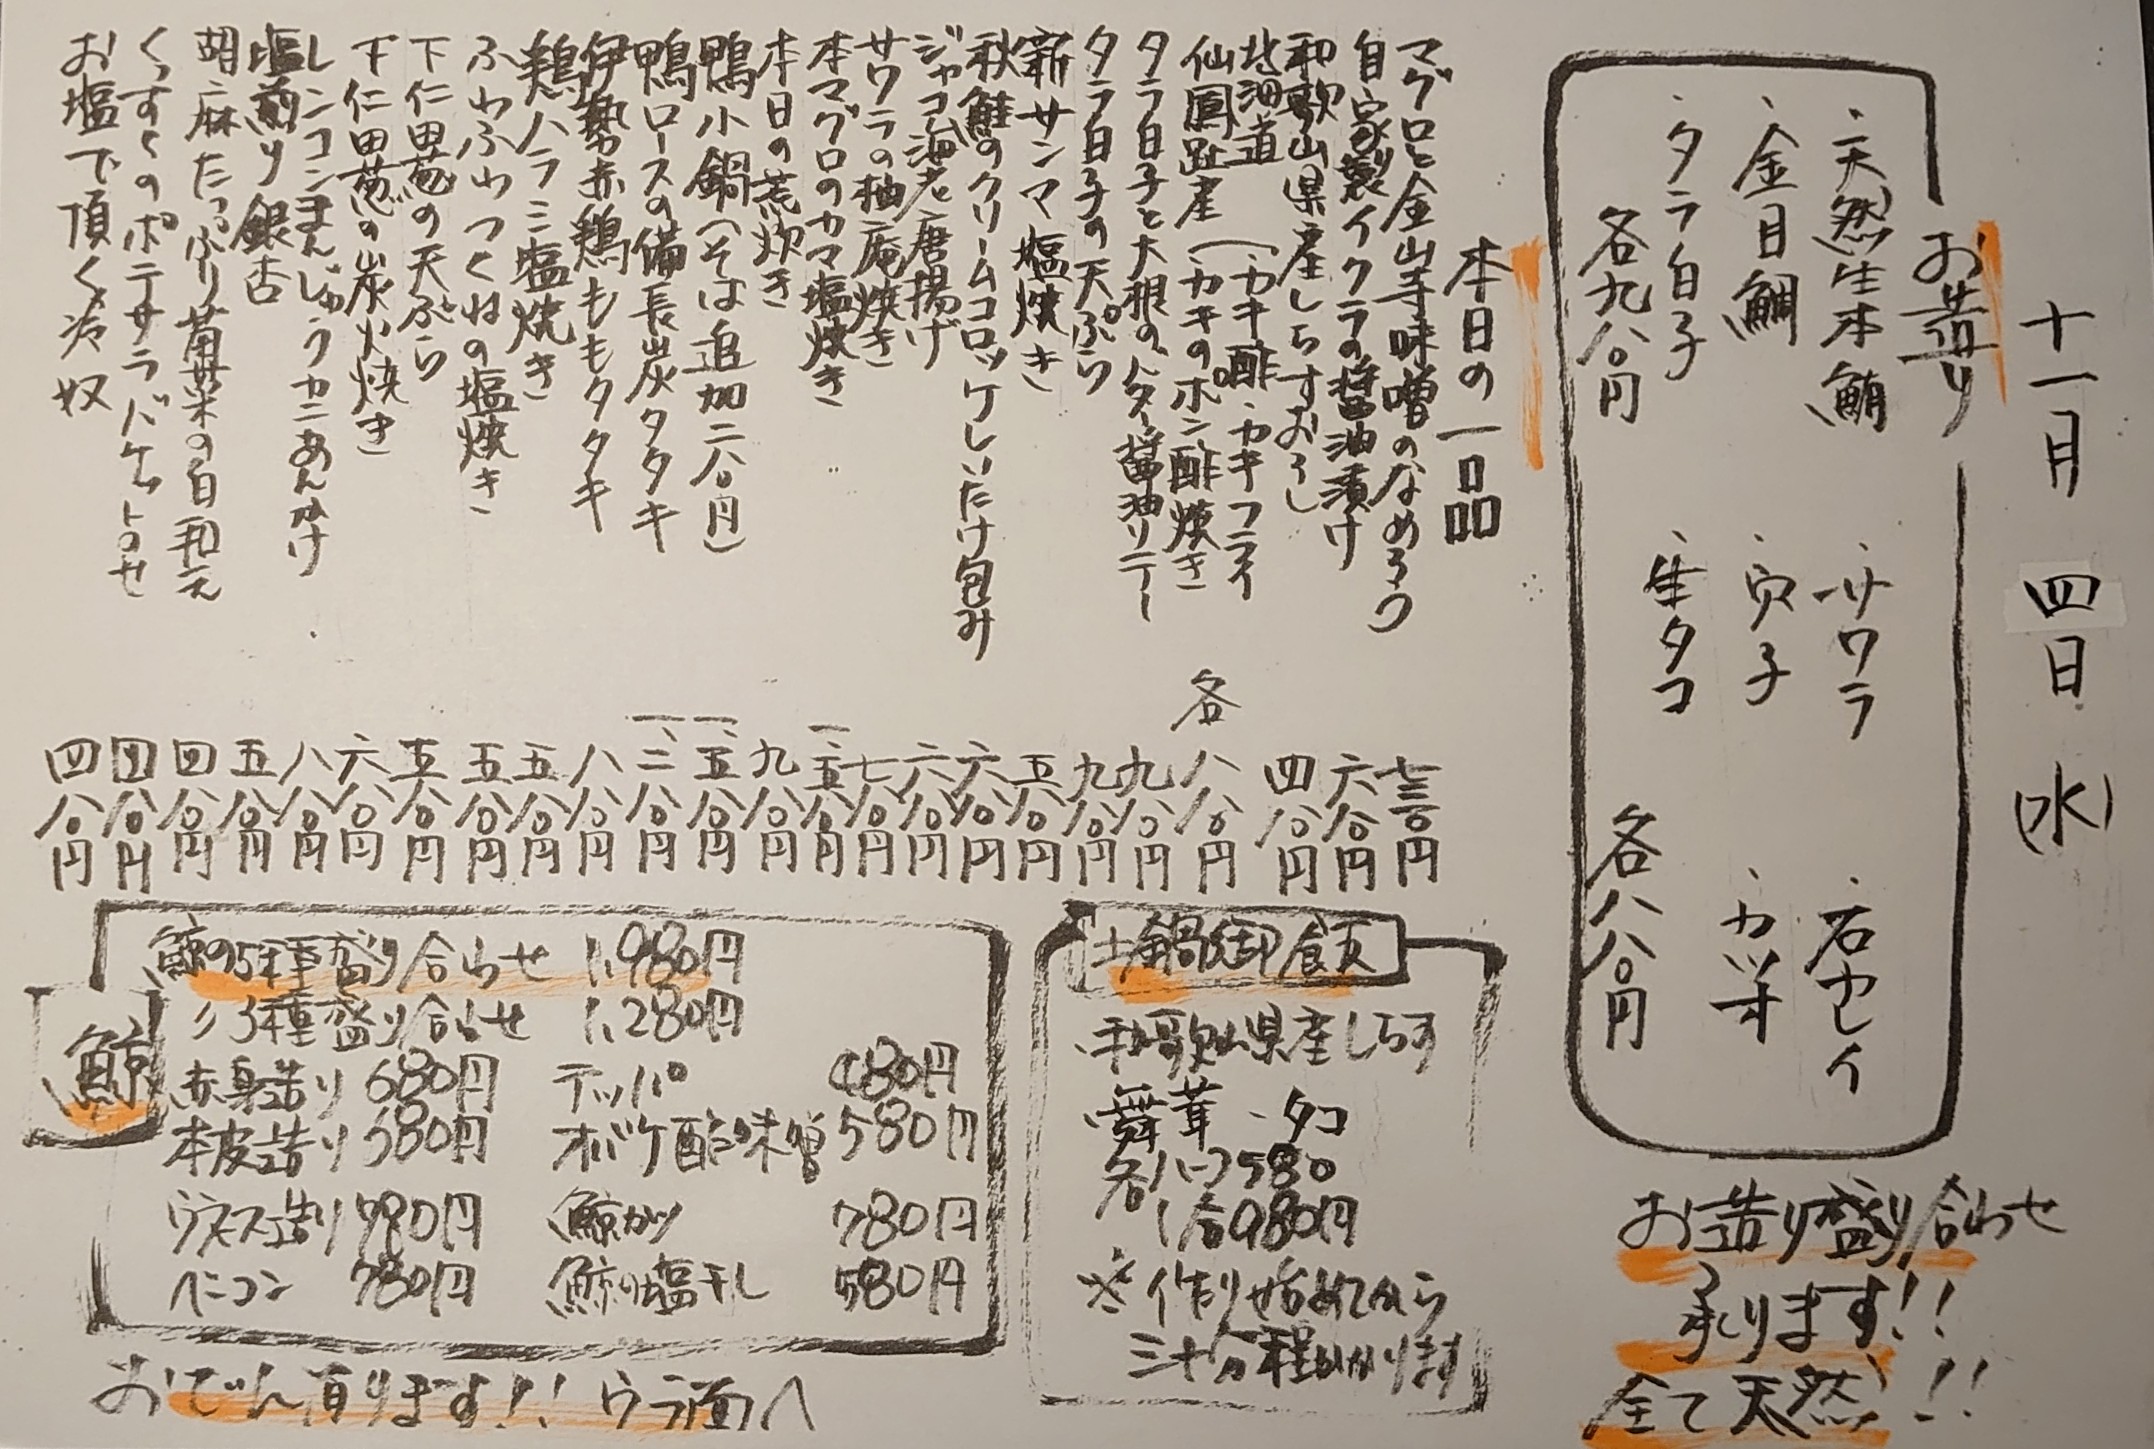 十一月 四日 (水)
お造り
・天然生本鮪 ・サワラ ・石ガレイ
・金目鯛 ・穴子 ・カツオ
・タラ白子 ・生タコ
各九八〇円 各八八〇円
お造り盛り合わせ
承ります!!
全て天然!!
本日の一品
マグロと金山寺味噌のなめろう 七三〇円
自家製イクラの醤油漬け 六八〇円
和歌山県産しらすおろし 四八〇円
北海道
仙鳳趾産 (・カキ酢・カキフライ
・カキのポン酢焼き 各 八八〇円
タラ白子と大根のバター醤油ソテー 九八〇円
タラ白子の天ぷら 九八〇円
新サンマ塩焼き 五八〇円
秋鮭のクリームコロッケしいたけ包み 六八〇円
ジャコ海老唐揚げ 六八〇円
サワラの柚庵焼き 七八〇円
本マグロのカマ塩焼き 一、五八〇円
本日の荒炊き 九八〇円
鴨小鍋(そば追加二八〇円) 一、五八〇円
鴨ロースの備長炭タタキ 一、二八〇円
伊勢赤鶏ももタタキ 八八〇円
鶏ハラミ塩焼き 五八〇円
ふわふわつくねの塩焼き 五八〇円
下仁田葱の天ぷら 五八〇円
下仁田葱の炭火焼き 六八〇円
レンコンまんじゅうカニあんかけ 八八〇円
塩煎り銀杏 五八〇円
胡麻たっぷり菊菜の白和え 四八〇円
くんすくのポテサラバケットのせ 四八〇円
お塩で頂く冷奴 四八〇円
土鍋御飯
和歌山県産しらす
舞茸 ・タコ
各ハーフ580
1合980円
※作り始めてから
三十分程かかります
鯨
鯨の5種盛り合らせ 1,980円
〃3種盛り合らせ 1,280円
赤身造り 680円 テッパ 480円
本皮造り 580円 オバケ酢味噌 580円
ウネス造り 780円 鯨カツ 780円
ベーコン 780円 鯨の塩干し 580円
おでん有ります!! ウラ面へ